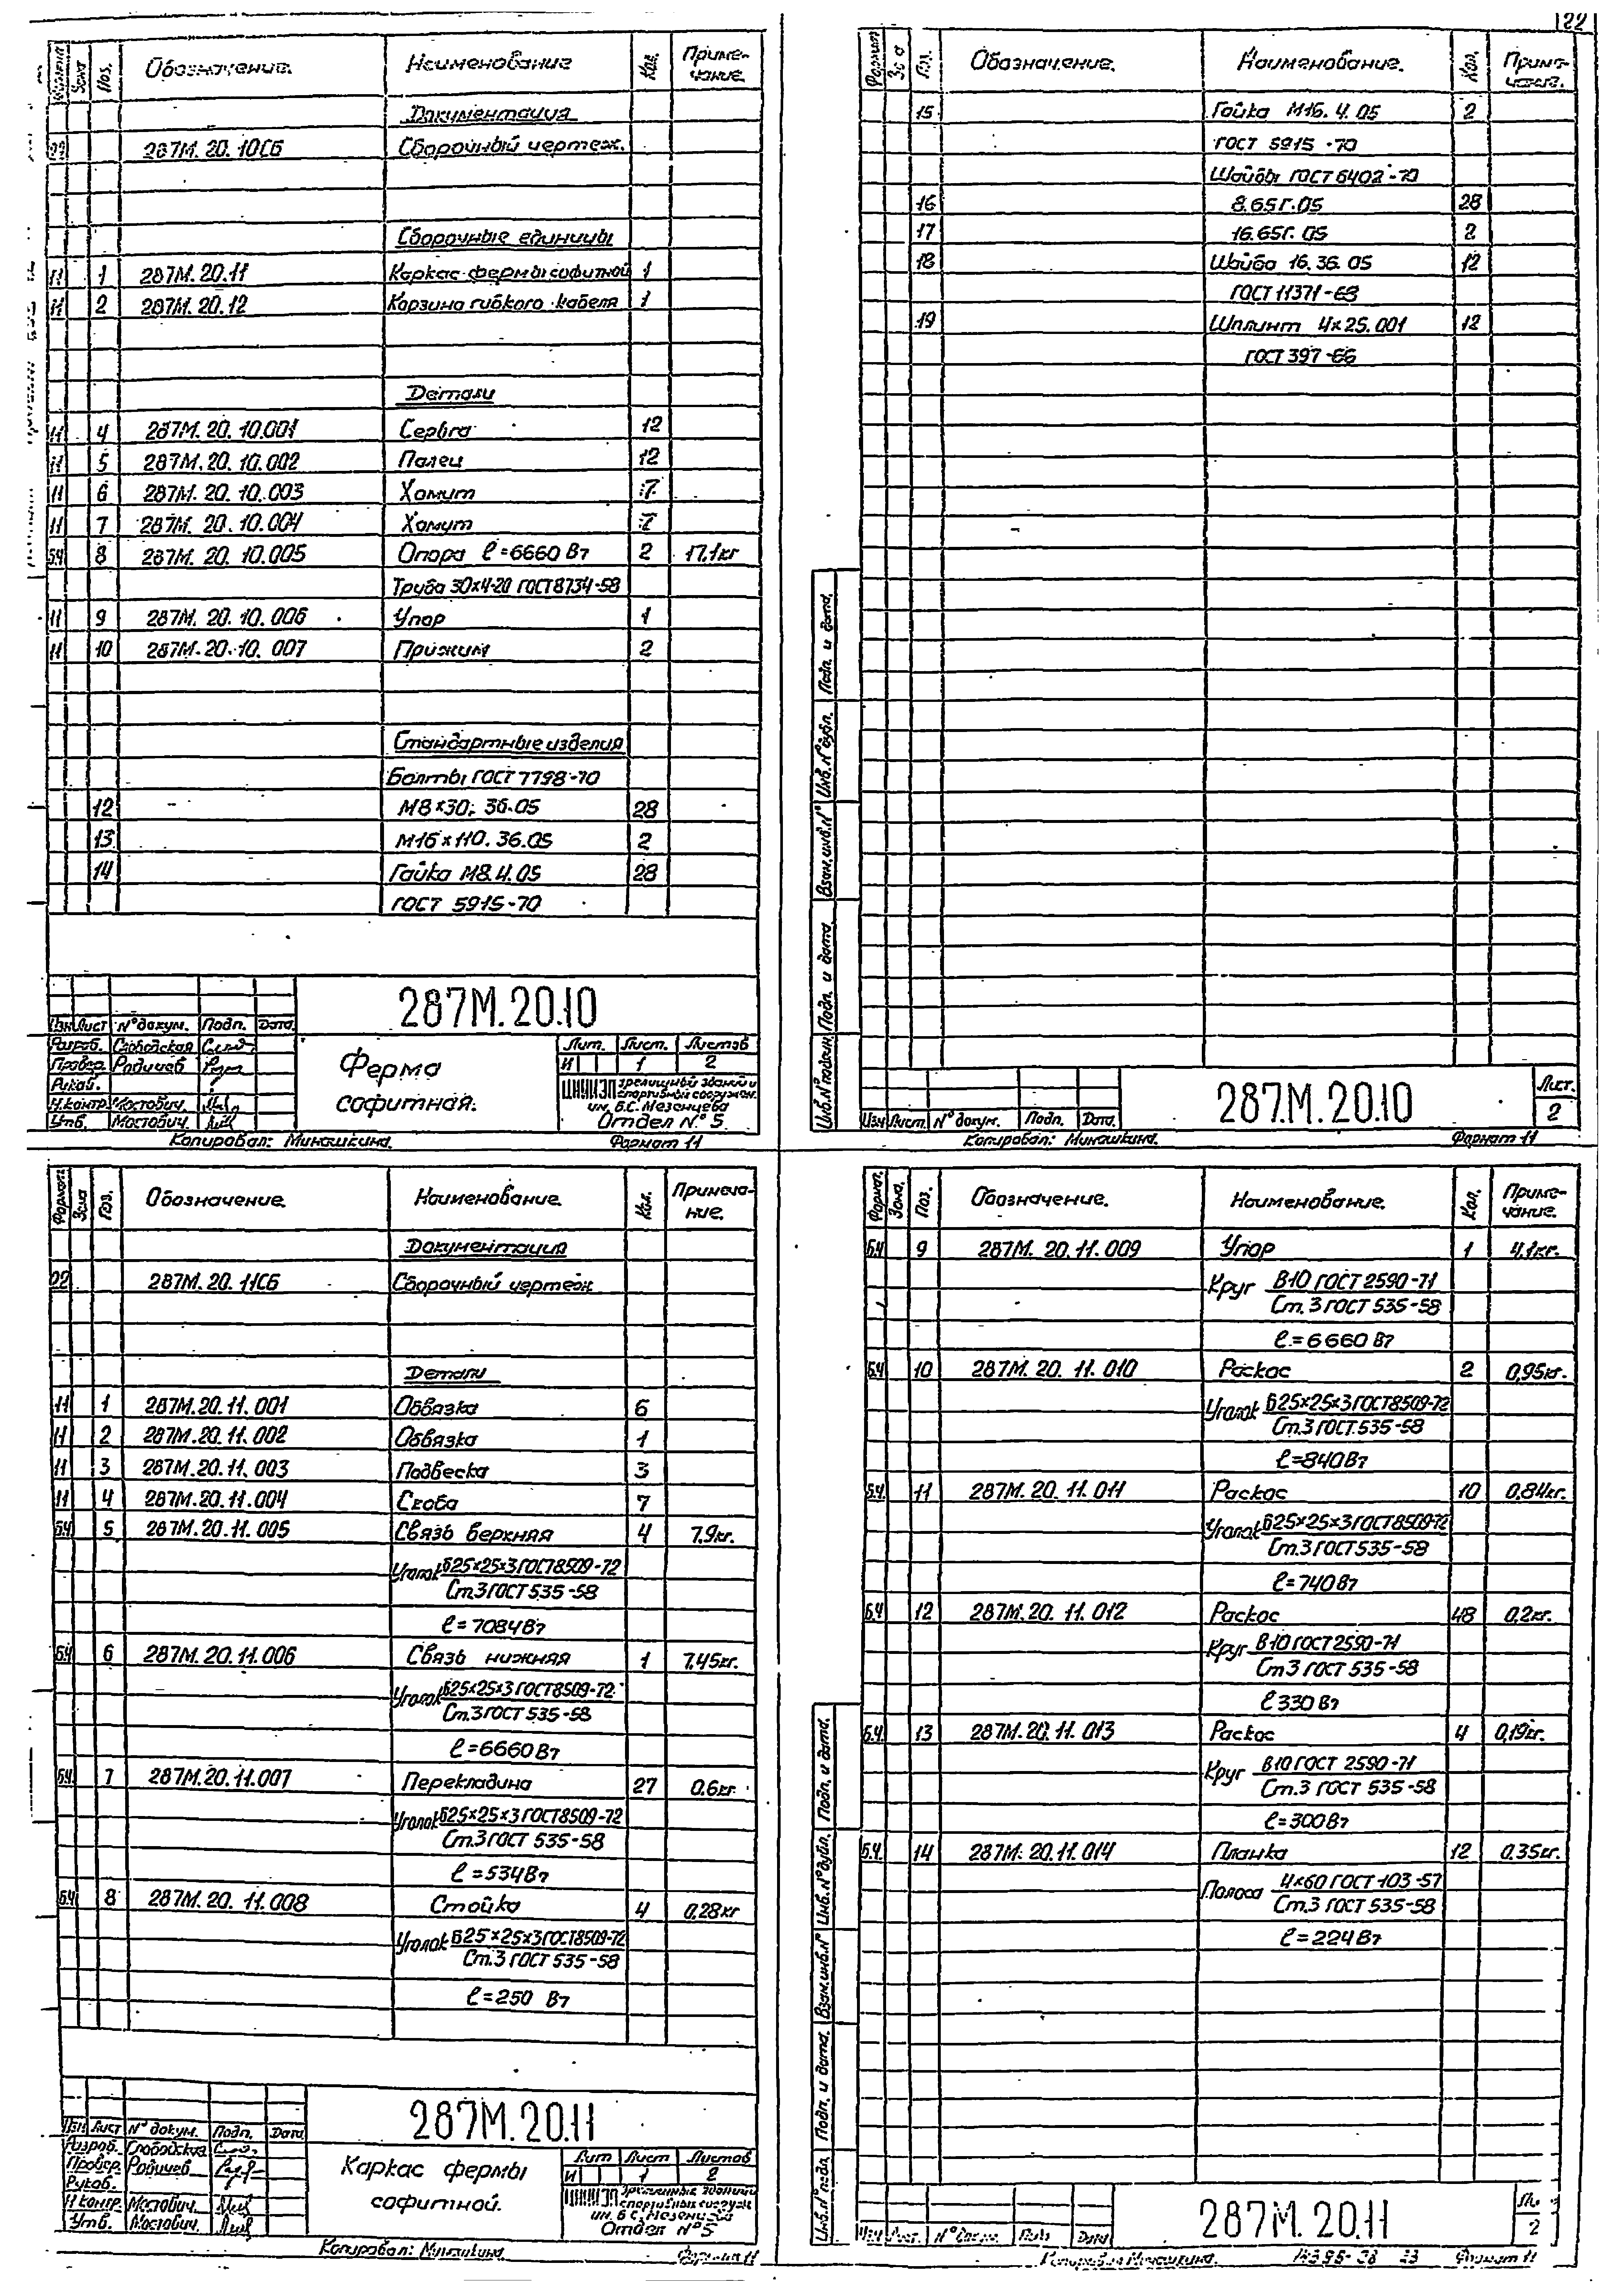 122
Обозначение. Наименование Кол. Приме-
Зона Поз. чание.
Документация
22 287М.20.10СБ Сборочный чертеж.
Сборочные единицы
11 1 287М.20.11 Каркас фермы софитной 1
11 2 287М.20.12 Корзина гибкого кабеля 1
Детали
11 4 287М.20.10.001 Серьга 12
11 5 287М.20.10.002 Палец 12
11 6 287М.20.10.003 Хомут 7
11 7 287М.20.10.004 Хомут 7
БЧ 8 287М.20.10.005 Опора ℓ=6660 В7 2 17,1кг
Труба 30×4-20 ГОСТ8734-58
11 9 287М.20.10.006 Упор 1
11 10 287М.20.10.007 Прижим 2
Стандартные изделия
Болты ГОСТ 7798-70
12 М8×30. 36.05 28
13 М16×110. 36.05 2
14 Гайка М8.4.05 28
ГОСТ 5915-70
287М.20.10
Изм Лист № докум. Подп. Дата
Разраб. Слободская
Провер. Радичев
Рукав.
Н.контр. Мостович.
Утв. Мостович.
Ферма
софитная.
Лит. Лист. Листов
И 1 2
зрелищных зданий и
спортивных сооружен.
им. Б.С. Мезенцева
Отдел №5
Копировал: Минашкина. Формат 11
Формат Зона Поз. Обозначение. Наименование. Кол. Приме-
чание.
15 Гайка М16.4.05 2
ГОСТ 5915-70
Шайбы ГОСТ 6402-70
16 8.65Г.05 28
17 16.65Г.05 2
18 Шайба 16.36.05 12
ГОСТ 11371-68
19 Шплинт 4×25.001 12
ГОСТ 397-66
Подп. и дата.
Инв.№дубл.
Взам.инв.№
Подп. и дата
Инв.№подлин
Изм Лист. № докум. Подп. Дата.
287.М.20.10
Лист.
2
Копировал: Минашкина. Формат 11
Формат. Зона Поз. Обозначение. Наименование. Кол. Примеча-
ние.
Документация
22 287М.20.11СБ Сборочный чертеж
Детали
11 1 287М.20.11.001 Обвязка 6
11 2 287М.20.11.002 Обвязка 1
11 3 287М.20.11.003 Подвеска 3
11 4 287М.20.11.004 Скоба 7
БЧ 5 287М.20.11.005 Связь верхняя 4 7,9кг.
Уголок Б25×25×3 ГОСТ8509-72
Ст.3 ГОСТ 535-58
ℓ=7084 В7
БЧ 6 287М.20.11.006 Связь нижняя 1 7,45кг.
Уголок Б25×25×3 ГОСТ8509-72
Ст.3 ГОСТ 535-58
ℓ=6660 В7
БЧ. 7 287М.20.11.007 Перекладина 27 0.6кг
Уголок Б25×25×3 ГОСТ8509-72
Ст.3 ГОСТ 535-58
ℓ=534 В7
БЧ. 8 287М.20.11.008 Стойка 4 0,28кг
Уголок Б25×25×3 ГОСТ8509-72
Ст.3 ГОСТ 535-58
ℓ=250 В7
287М.20.11
Изм Лист № докум. Подп. Дата
Разраб. Слободская
Провер. Радичев
Рукав.
Н контр. Мостович.
Утв. Мостович.
Каркас фермы
софитной.
Лит Лист Листов
И 1 2
зрелищных зданий и
спортивных сооруж.
им. Б.С. Мезенцева
Отдел №5
Копировал: Минашкина Формат 11
Формат. Зона. Поз. Обозначение. Наименование. Кол. Приме-
чание.
БЧ 9 287М.20.11.009 Упор 1 4,1кг.
Круг В10 ГОСТ 2590-71
Ст.3 ГОСТ 535-58
ℓ=6660 В7
БЧ 10 287М.20.11.010 Раскос 2 0,95кг.
Уголок Б25×25×3 ГОСТ8509-72
Ст.3 ГОСТ 535-58
ℓ=840 В7
БЧ. 11 287М.20.11.011 Раскос 10 0,84кг.
Уголок Б25×25×3 ГОСТ8509-72
Ст.3 ГОСТ 535-58
ℓ=740 В7
БЧ 12 287М.20.11.012 Раскос 48 0,2кг.
Круг В10 ГОСТ 2590-71
Ст 3 ГОСТ 535-58
ℓ 330 В7
БЧ. 13 287М.20.11.013 Раскос 4 0,19кг.
Круг В10 ГОСТ 2590-71
Ст.3 ГОСТ 535-58
ℓ=300 В7
БЧ. 14 287М.20.11.014 Планка 12 0.35кг.
Полоса 4×60 ГОСТ 103-57
Ст.3 ГОСТ 535-58
ℓ=224 В7
Подп. и дата.
Инв.№дубл.
Взам.инв.№
Подп. и дата.
Инв.№подл.
Изм Лист. № докум. Подп Дата
287М.20.11
2
Копировал Минашкина. Формат 11